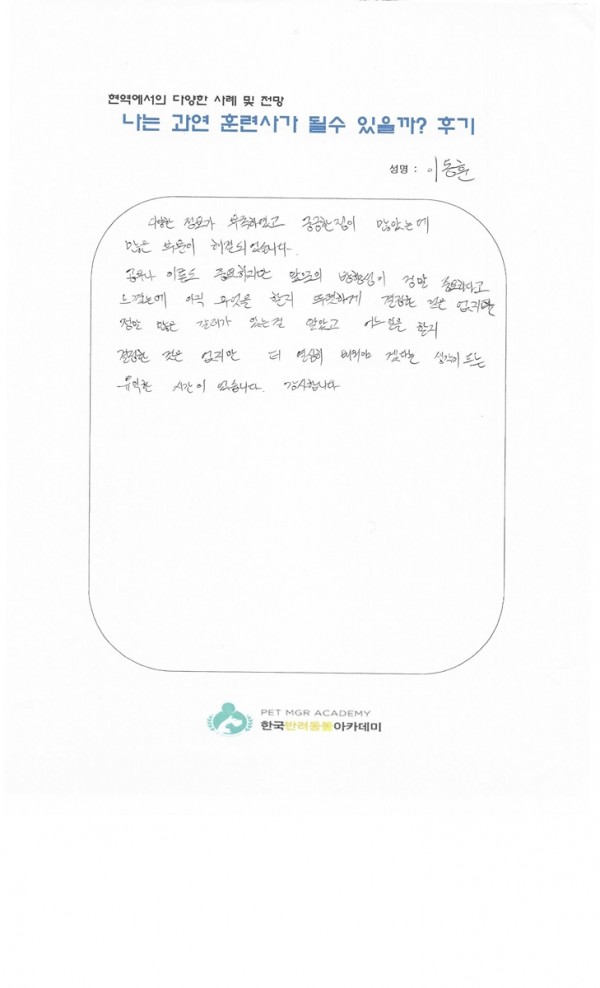 현역에서의 다양한 사례 및 전망
나는 과연 훈련사가 될수 있을까? 후기
성명 : 이동훈
다양한 정보가 부족하였고 궁금한점이 많았는데
많은 부분이 해결되었습니다.
공부나 이론도 중요하지만 앞으로의 방향성이 정말 중요하다고
느꼈는데 아직 무엇을 할지 뚜렷하게 결정한 것은 없지만
정말 많은 갈래가 있는걸 알았고 어느일을 할지
결정한 것은 없지만 더 열심히 배워야 겠다는 생각이 드는
유익한 시간이 었습니다. 감사합니다
PET MGR ACADEMY
한국반려동물아카데미